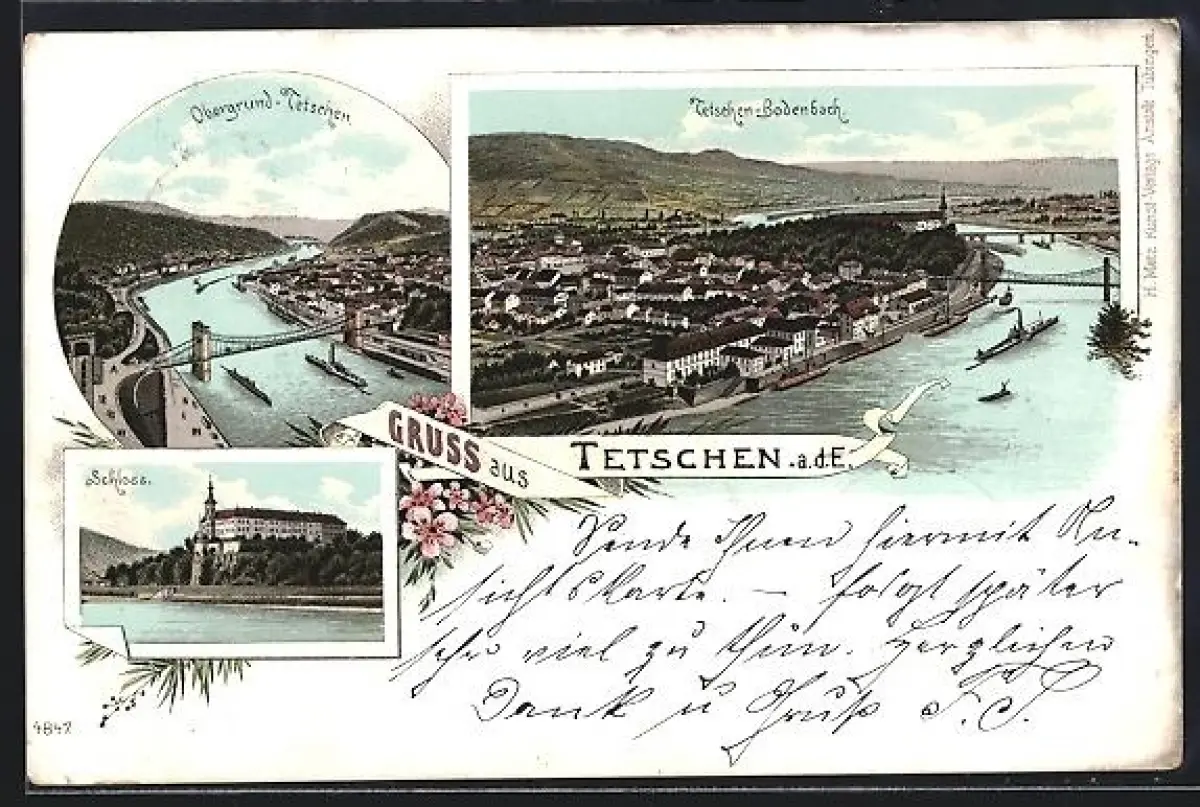 Obergrund-Tetschen
Tetschen-Bodenbach
H. Metz Kunst-Verlags Anstalt Tübingen.
GRUSS aus TETSCHEN .a.d.E.
Schloss.
Sende Ihnen hiermit An-
sichtskarte. – folgt später
sehr viel zu thun. Herzlichen
Dank u Gruß F.S.
4842